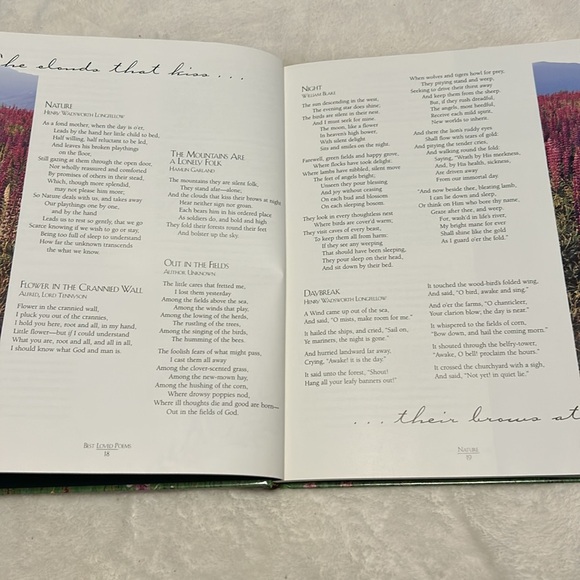 he clouds that kiss . . .
NATURE
HENRY WADSWORTH LONGFELLOW
As a fond mother, when the day is o'er,
Leads by the hand her little child to bed,
Half willing, half reluctant to be led,
And leaves his broken playthings
on the floor,
Still gazing at them through the open door,
Nor wholly reassured and comforted
By promises of others in their stead,
Which, though more splendid,
may not please him more;
So Nature deals with us, and takes away
Our playthings one by one,
and by the hand
Leads us to rest so gently, that we go
Scarce knowing if we wish to go or stay,
Being too full of sleep to understand
How far the unknown transcends
the what we know.
FLOWER IN THE CRANNIED WALL
ALFRED, LORD TENNYSON
Flower in the crannied wall,
I pluck you out of the crannies,
I hold you here, root and all, in my hand,
Little flower—but if I could understand
What you are, root and all, and all in all,
I should know what God and man is.
THE MOUNTAINS ARE
A LONELY FOLK
HAMLIN GARLAND
The mountains they are silent folk,
They stand afar—alone;
And the clouds that kiss their brows at night
Hear neither sigh nor groan.
Each bears him in his ordered place
As soldiers do, and bold and high
They fold their forests round their feet
And bolster up the sky.
OUT IN THE FIELDS
AUTHOR UNKNOWN
The little cares that fretted me,
I lost them yesterday
Among the fields above the sea,
Among the winds that play,
Among the lowing of the herds,
The rustling of the trees,
Among the singing of the birds,
The humming of the bees.
The foolish fears of what might pass,
I cast them all away
Among the clover-scented grass,
Among the new-mown hay,
Among the hushing of the corn,
Where drowsy poppies nod,
Where ill thoughts die and good are born—
Out in the fields of God.
BEST LOVED POEMS
18
NIGHT
WILLIAM BLAKE
The sun descending in the west,
The evening star does shine;
The birds are silent in their nest,
And I must seek for mine.
The moon, like a flower
In heaven's high bower,
With silent delight
Sits and smiles on the night.
Farewell, green fields and happy grove,
Where flocks have took delight;
Where lambs have nibbled, silent move
The feet of angels bright;
Unseen they pour blessing
And joy without ceasing
On each bud and blossom
On each sleeping bosom.
They look in every thoughtless nest
Where birds are cover'd warm;
They visit caves of every beast,
To keep them all from harm:
If they see any weeping
That should have been sleeping,
They pour sleep on their head,
And sit down by their bed.
When wolves and tigers howl for prey,
They pitying stand and weep,
Seeking to drive their thirst away
And keep them from the sheep.
But, if they rush dreadful,
The angels, most heedful,
Receive each mild spirit,
New worlds to inherit.
And there the lion's ruddy eyes
Shall flow with tears of gold:
And pitying the tender cries,
And walking round the fold:
Saying, "Wrath by His meekness,
And, by His health, sickness,
Are driven away
From our immortal day.
"And now beside thee, bleating lamb,
I can lie down and sleep,
Or think on Him who bore thy name,
Graze after thee, and weep.
For, wash'd in life's river,
My bright mane for ever
Shall shine like the gold
As I guard o'er the fold."
DAYBREAK
HENRY WADSWORTH LONGFELLOW
A Wind came up out of the sea,
And said, "O mists, make room for me."
It hailed the ships, and cried, "Sail on,
Ye mariners, the night is gone."
And hurried landward far away,
Crying, "Awake! it is the day."
It said unto the forest, "Shout!
Hang all your leafy banners out!"
It touched the wood-bird's folded wing,
And said, "O bird, awake and sing."
And o'er the farms, "O chanticleer,
Your clarion blow; the day is near."
It whispered to the fields of corn,
"Bow down, and hail the coming morn."
It shouted through the belfry-tower,
"Awake, O bell! proclaim the hours."
It crossed the churchyard with a sigh,
And said, "Not yet! in quiet lie."
. . . their brows at
NATURE
19